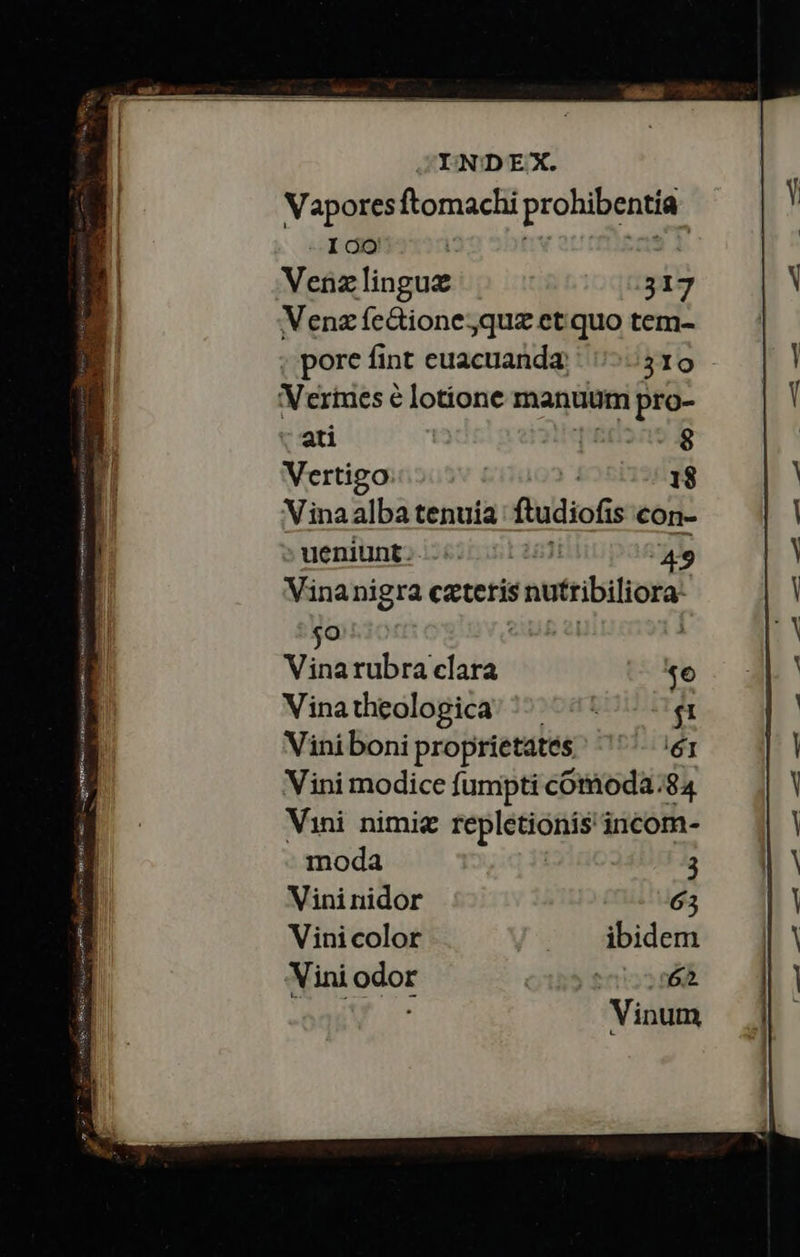 INDEX.
Vapores ſtomachi prohibentia
100
Venæ linguæ 317
Venæ ſectione, quæ et quo tem-
pore ſint euacuanda 310
Vermes è lotione manuum pro-
ati 8
Vertigo 18
Vina alba tenuia ſtudioſis con-
ueniunt. 49
Vina nigra cæteris nutribiliora
50
Vina rubra clara 50
Vina theologica 51
Vini boni proprietates 61
Vini modice ſumpti cōmoda. 84
Vini nimiæ repletionis incom-
moda 3
Vini nidor 63
Vini color ibidem
Vini odor 62
Vinum